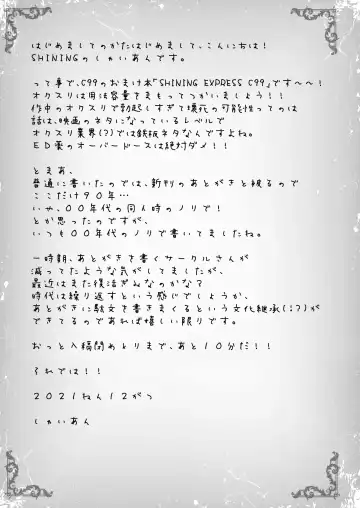 はじめましてのかたはじめまして、こんにちは！
SHININGのしゃいあんです。
って事で、C99のおまけ本「SHINING EXPRESS C99」です〜〜！
オクスリは用法容量をまもってつかいましょう！！
作中のオクスリで勃起しすぎて壊死の可能性っての
話は、映画のネタになっているレベルで
オクスリ業界(？)では鉄板ネタなんですよね。
ED薬のオーバードースは絶対ダメ！！
とまあ、
普通に書いたのでは、新刊のあとがきと被るので
ここだけ90年…
いや、00年代の同人時のノリで！
とか思ったのですが、
いつも00年代のノリで書いてましたね。
一時期、あとがきを書くサークルさんが
減ってたような気がしてましたが、
最近はまた復活ぎみなのかな？
時代は繰り返すという感じでしょうか、
あとがきに駄文を書きまくるという文化継承(！？)が
できてるのであれば嬉しい限りです。
おっと入稿閉めきりまで、あと10分だ！！
それでは！！
2021ねん12がつ
しゃいあん